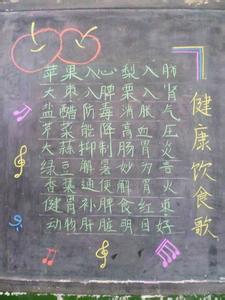 健康饮食歌
苹果入心梨入肺
大枣入脾栗入肾
盐醋防毒消胀气
芹菜能降高血压
大蒜抑制肠胃炎
绿豆解暑妙为首
香蕉通便解胃火
健胃补脾食红枣
动物肝脏明目好